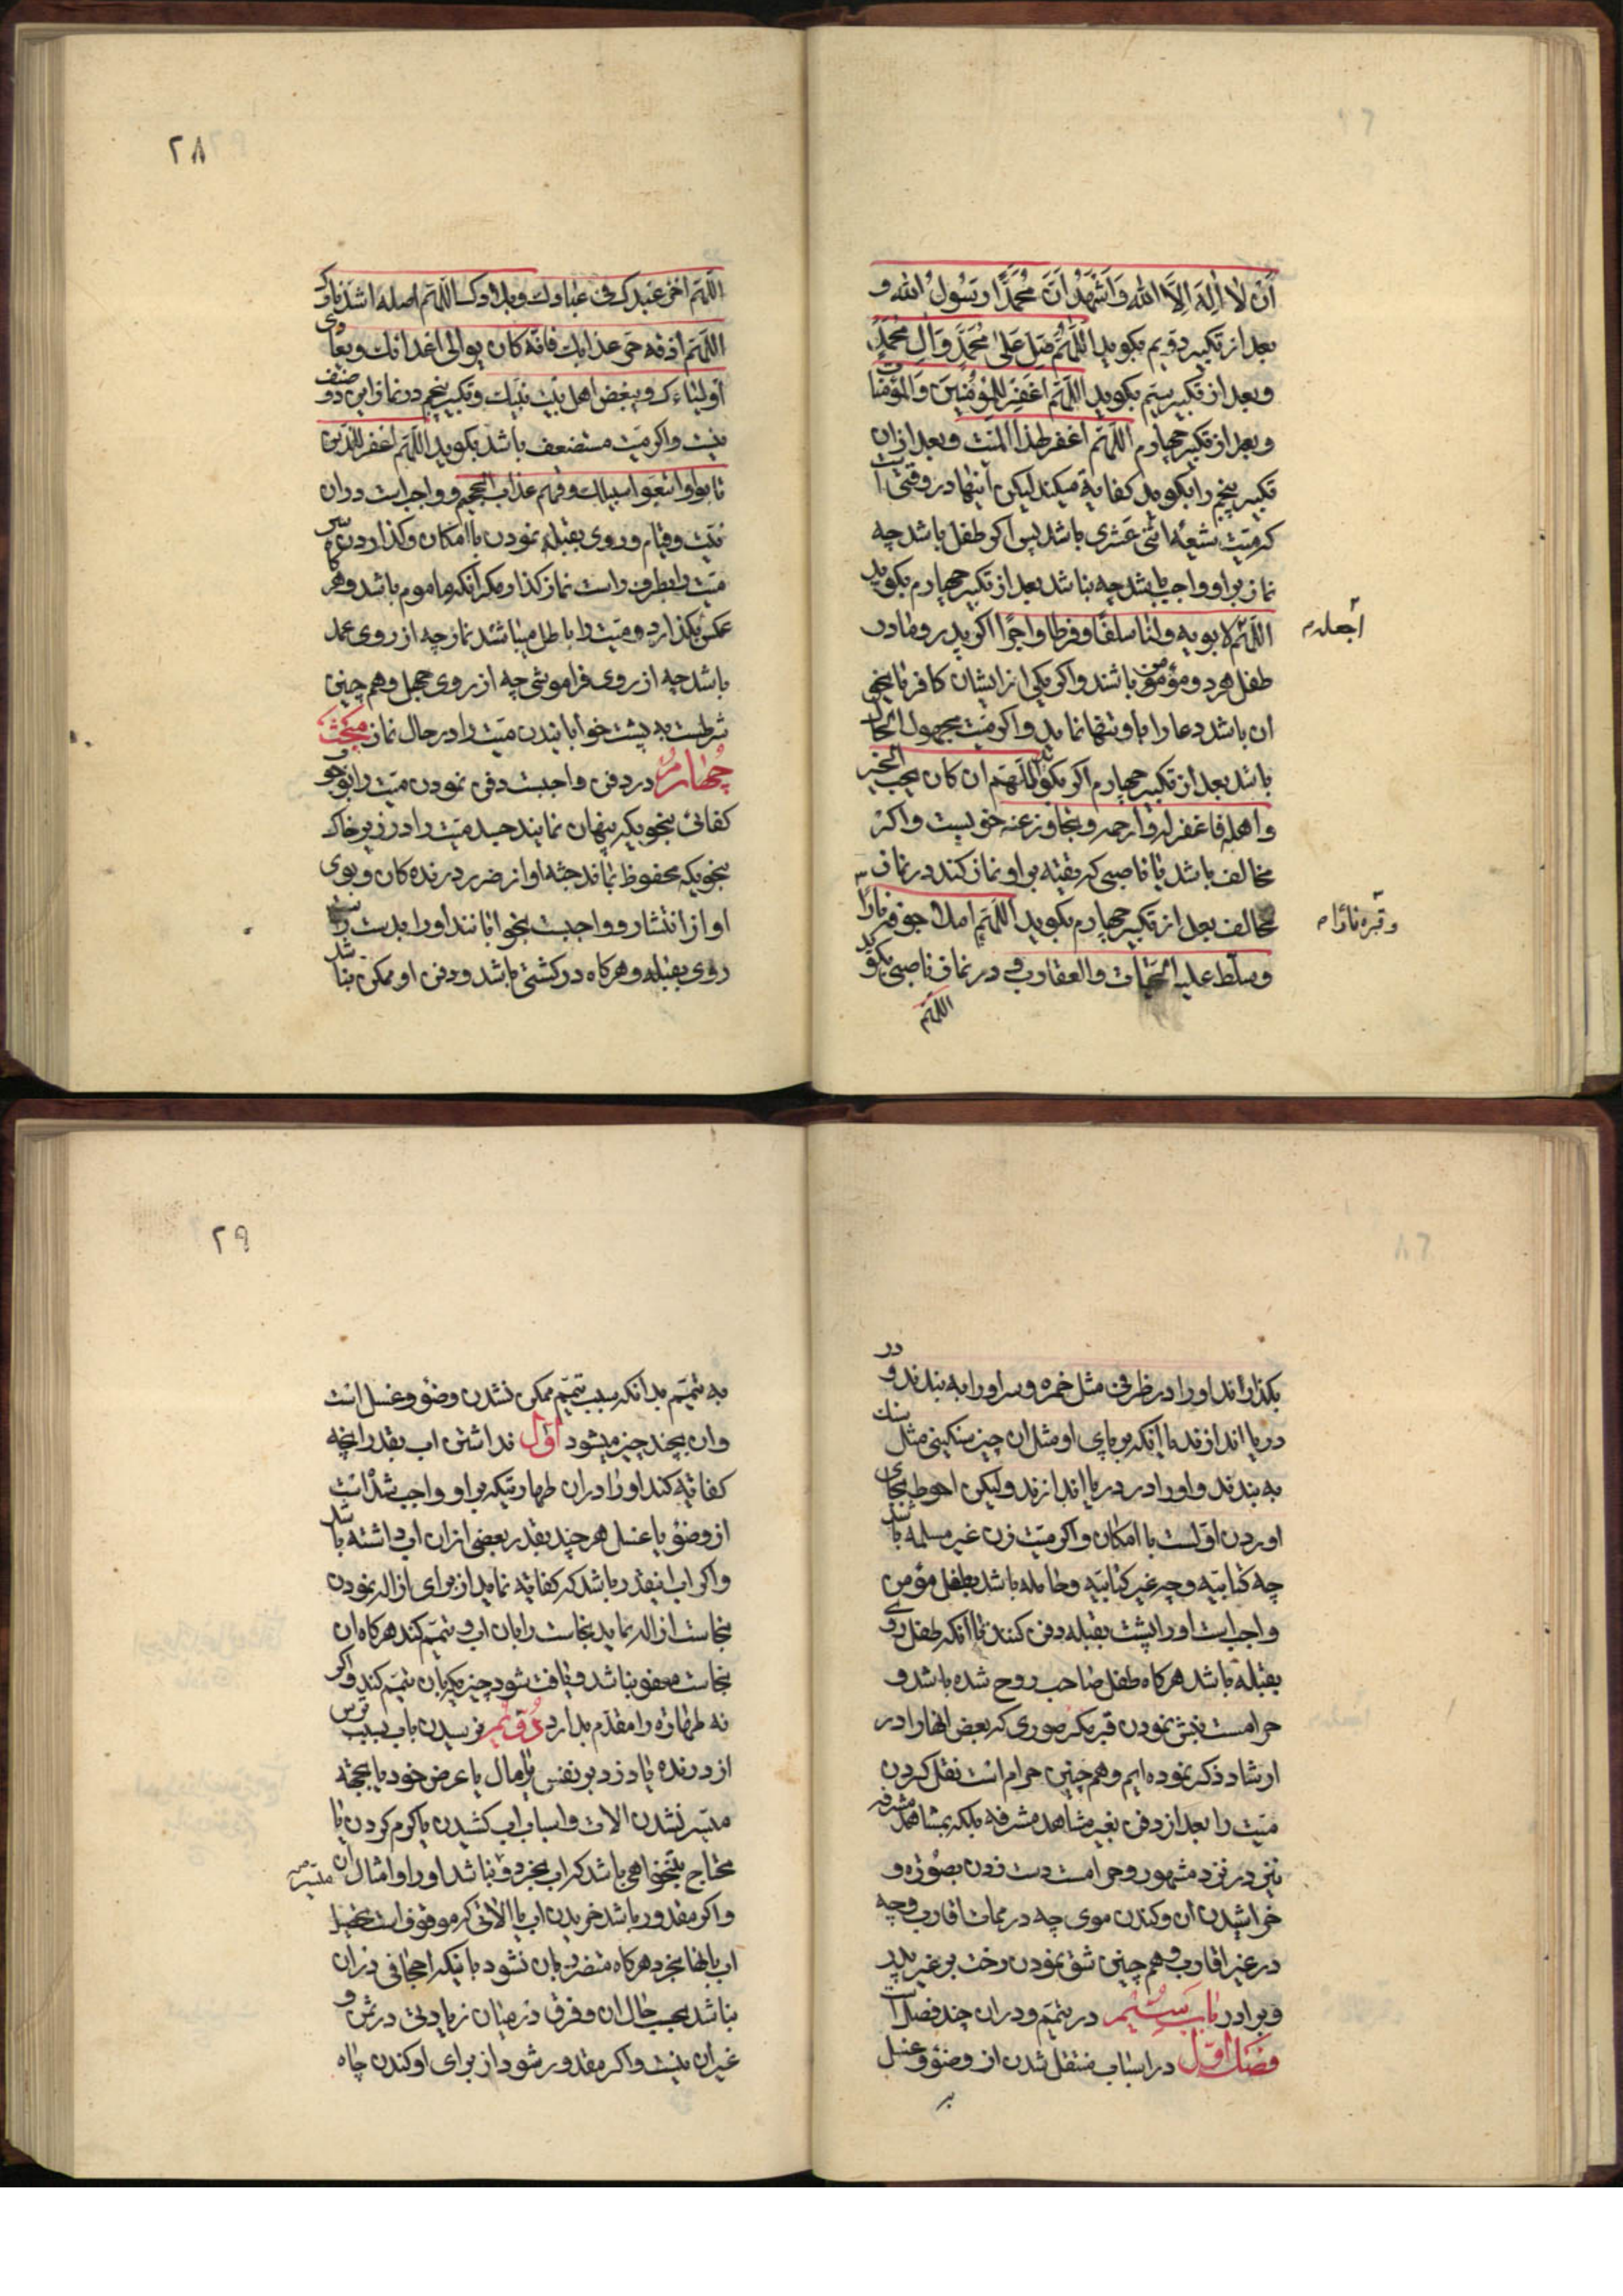 ان لا اله الا الله و اشهد ان محمدا رسول الله و
بعد از تکبیر دویم بکوید اللهم صل علی محمد و ال محمد
و بعد از تکبیر سیم بکوید اللهم اغفر للمؤمنین و المؤمنات
و بعد از تکبیر چهارم اللهم اغفر لهذا المیت و بعد از ان
تکبیر پنجم را بکوید کفایة میکند لیکن اینها در وقتی است
که میت شیعه اثنی عشری باشد پس اکر طفل باشد چه
نماز بر او واجب باشد چه نباشد بعد از تکبیر چهارم بکوید
اللهم لابویه و لنا سلفا و فرطا و اجرا اکر پدر و مادر
اجعله م
طفل هر دو مؤمن باشند و اکر یکی از ایشان کافر یا
ان باشد دعا را باو تنها نماید و اکر میت مجهول الحال
باشد بعد از تکبیر چهارم اکر بکوید اللهم ان کان یحب الخیر
و اهله فاغفر له و ارحمه و تجاوز عنه خوبست و اکر
مخالف باشد یا ناصبی که بتقیه بر او نماز کند در نماز
مخالف بعد از تکبیر چهارم بکوید اللهم املا جوفه نارا
و قبره نارا م
و سلط علیه الحیات و العقارب و در نماز ناصبی بکوید
اللهم
۲۸
اللهم اخز عبدک فی عبادک و بلادک اللهم اصله اشد نارک
اللهم اذقه حر عذابک فانه کان یوالی اعدائک و یعادی
اولیاءک و یبغض اهل بیت نبیک و تکبیر پنجم در نماز این دو صنف
نیست و اکر میت مستضعف باشد بکوید اللهم اغفر للذین
تابوا و اتبعوا سبیلک و قهم عذاب الجحیم و واجب است در ان
نیت و قیام و روی بقبله نمودن با امکان و کذاردن سر
میت را بطرف راست نماز کذار مکر انکه ماموم باشد و هرکاه
عکس بکذارد میت را باطل میباشد نماز چه از روی عمد
باشد چه از روی فراموشی چه از روی جهل و هم چنین
شرطست به پشت خوابانیدن میت را در حال نماز مبحث
چهارم در دفن واجبست دفن نمودن میت را بوجوب
کفائی بنحویکه پنهان نمایند جسد میت را در زیر خاک
بنحویکه محفوظ بماند جثه او از ضرر درنده کان و بوی
او از انتشار و واجبست بخوابانند او را بدست راست
روی بقبله و هرکاه در کشتی باشد و دفن او ممکن نباشد
بکذارند او را در ظرفی مثل خمره و سر او را به بندند و در
دریا اندازند یا انکه بر پای او مثل ان چیز سنکینی مثل سنک
به بندند و او را در دریا اندازند و لیکن احوط بجای
اوردن اولست با امکان و اکر میت زن غیر مسلمه باشد
چه کتابیه و چه غیر کتابیه و حامله باشد بطفل مؤمن
واجب است او را پشت بقبله دفن کنند تا انکه طفل روی
بقبله باشد هرکاه طفل صاحب روح شده باشد و
حرامست نبش نمودن قبر مکر صوری که بعض انها را در
ارشاد ذکر نموده ایم و هم چنین حرام است نقل کردن
میت را بعد از دفن بغیر مشاهد مشرفه بلکه بمشاهد مشرفه
نیز در نزد مشهور و حرامست دست زدن بصورة و
خراشیدن ان و کندن موی چه در ممات اقارب و چه
در غیر اقارب و هم چنین شق نمودن رخت بر غیر پدر
و برادر باب سیم در تیمم و در ان چند فصل است
فصل اول در اسباب منتقل شدن از وضؤ و غسل
۲۹
به تیمم بدانکه سبب تیمم ممکن نشدن وضؤ و غسل است
و ان بچند چیز میشود اول نداشتن اب بقدر انچه
کفایة کند او را در ان طهارتیکه بر او واجب شده است
از وضؤ یا غسل هر چند بقدر بعضی از ان اب داشته باشد
و اکر اب اینقدر باشد که کفایة نماید از برای ازاله نمودن
نجاست ازاله نماید نجاست را بان اب و تیمم کند هرکاه ان
نجاست معفو نباشد و یافت شود چیزیکه بان تیمم کند و اکر
نه طهارة را مقدم بدارد دویم نرسیدن باب بسبب ترس
از درنده یا دزد بر نفس یا مال یا عرض خود یا بجهة
میسر نشدن الات و اسباب اب کشیدن یا کرم کردن یا
محتاج بتنخواهی باشد که اب بخرد و نباشد او را و امثال ان
میسر م
و اکر مقدور باشد خریدن اب یا الاتی که موقوف است تحصیل
اب بانها بخرد هرکاه متضرر بان نشود بانیکه اجحافی در ان
نباشد بحسب حال ان و فرق در میان زیادتی در ثمن و
غیر ان نیست و اکر مقدور شود از برای او کندن چاه